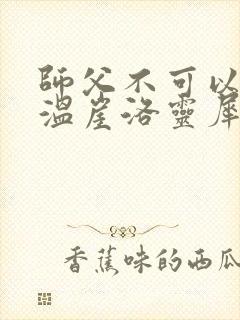 師父不可以
溫崖洛靈犀
香蕉味的西瓜